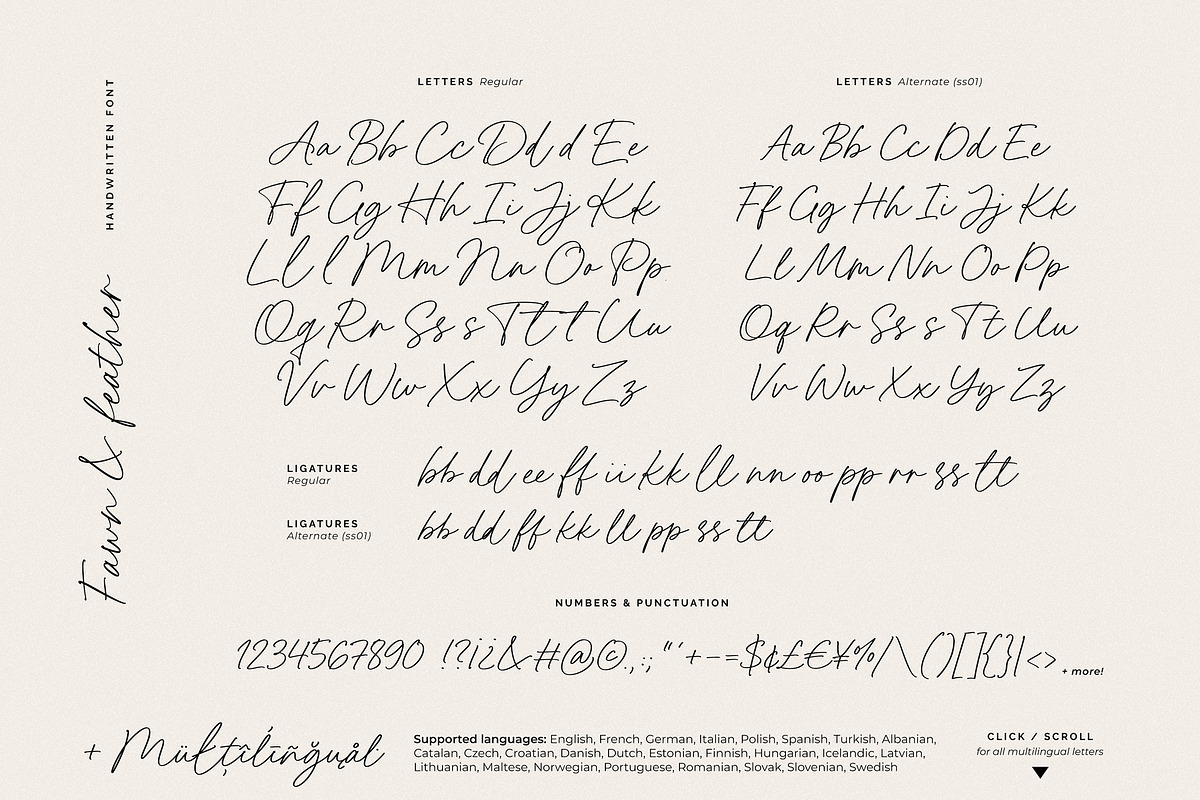 HANDWRITTEN FONT
Fawn & feather
LETTERS Regular
Aa Bb Cc Dd d Ee
Ff Gg Hh Ii Jj Kk
Ll l Mm Nn Oo Pp
Qq Rr Ss s Tt t Uu
Vv Ww Xx Yy Zz
LETTERS Alternate (ss01)
Aa Bb Cc Dd Ee
Ff Gg Hh Ii Jj Kk
Ll Mm Nn Oo Pp
Qq Rr Ss s Tt Uu
Vv Ww Xx Yy Zz
LIGATURES
Regular
bb dd ee ff ii kk ll nn oo pp rr ss tt
LIGATURES
Alternate (ss01)
bb dd ff kk ll pp ss tt
NUMBERS & PUNCTUATION
1234567890 !?¡¿&#@©.,:; "'+-–=$¢£€¥%/\()[]{}|<> + more!
+ Müłţîľīñğųål
Supported languages: English, French, German, Italian, Polish, Spanish, Turkish, Albanian,
Catalan, Czech, Croatian, Danish, Dutch, Estonian, Finnish, Hungarian, Icelandic, Latvian,
Lithuanian, Maltese, Norwegian, Portuguese, Romanian, Slovak, Slovenian, Swedish
CLICK / SCROLL
for all multilingual letters